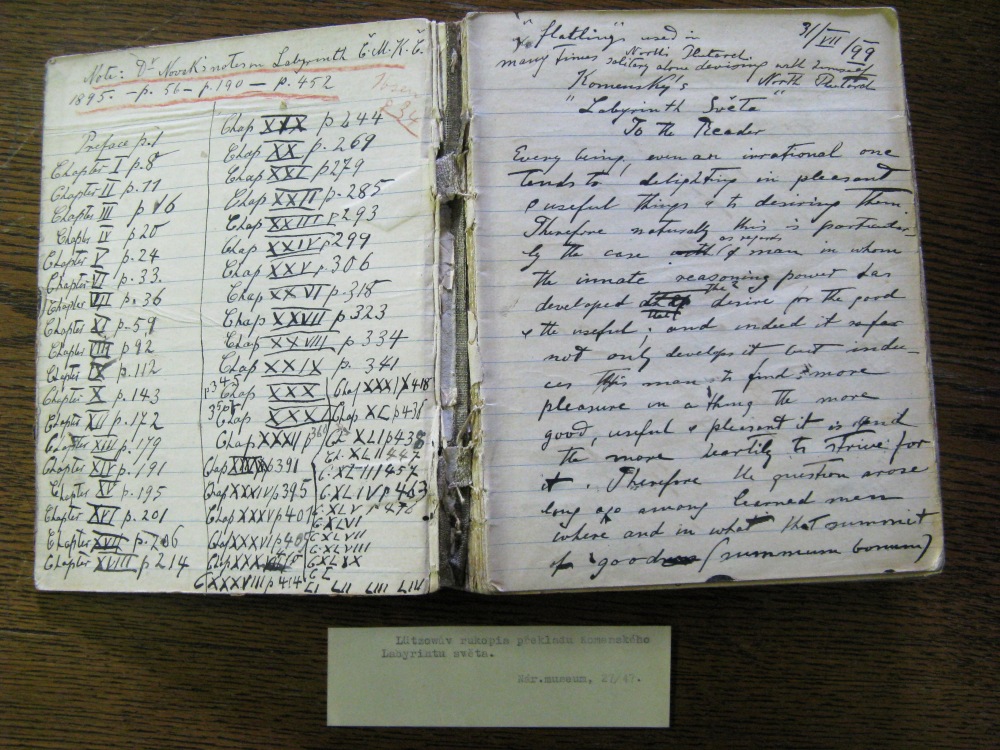 Note: Dr Novak's notes on Labyrinth Č.M.K.Č.
1895. — p. 56 — p. 190 — p. 452
Preface p. 1
Chapter I p. 8
Chapter II p. 11
Chapter III p 16
Chapter IV p. 20
Chapter V p. 24
Chapter VI p. 33.
Chapter VII p. 36
Chapter XI p. 59
Chapter VIII p 92
Chapter IX p. 112
Chapter X p. 143
Chapter XII p. 172
Chapter XIII p. 179
Chapter XIV p. 191
Chapter XV p. 195
Chapter XVI p. 201
Chapter XVII p. 206
Chapter XVIII p. 214
Chap XIX p 244
Chap XX p. 269
Chap XXI p 279
Chap XXII p. 285
Chap XXIII p 293
Chap XXIV p 299
Chap XXV p. 306
Chap XXVI p. 318
Chap XXVII p 323
Chap XXVIII p. 334
Chap XXIX p. 341
Chap XXX
Chap XXXI
Chap XXXII p
Chap p391
Chap XXXIV p 395
Chap XXXV p 401
Chap XXXVI p 405
Chap
C XXXVIII p 414
Chap XXXIX 418
Chap XL p 431
Ch. XLI p 438
Ch. XLII 447
C. XLIII 457
C. XLIV p 463
C. XLV p 476
C. XLVI
C. XLVII
C. XLVIII
C. XLIX
C. L
LI LII LIII LIV
"flatlings" used in
31/VII/99
many times
solitary alone devising with
North
Komenský's
"Labyrinth Světa"
To the Reader
Every being, even an irrational one
tends to delighting in pleasant
& useful things & to desiring them.
Therefore naturally this is particular
as regards
ly the case of man in whom
the innate reasoning power has
the
developed desire for the good
that
& the useful; and indeed it so far
not only develops it but indu-
ces this man to find more
pleasure in a thing the more
good, useful & pleasant it is and
the more heartily to strive for
it. Therefore the question arose
long ago among learned men
where and in what that summit
of good (summum bonum)
Lützowův rukopis překladu Komenského
Labyrintu světa.
Nár.museum, 27/47.